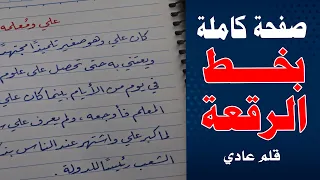 صفحة كاملة
بخط
الرقعة
قلم عادي
علي ومعلمه
كان علي وهو صغير تلميذاً مجتهداً
ويعتني به حتى تحصل علي علوم
في يوم من الأيام بينما كان علي
المعلم فأوجعه، ولم يعرف علي
لما كبر علي واشتهر عند الناس
الشعب رئيسًا للدولة.